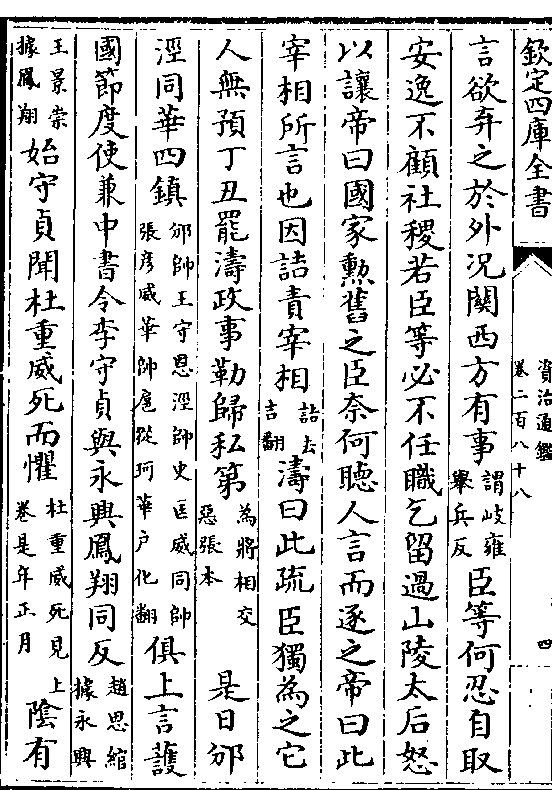 欽定四庫全書
資治通鑑
卷二百八十八
四
言欲弃之於外况關西方有事謂岐雍舉兵反臣等何忍自取
安逸不顧社稷若臣等必不任職乞留過山陵太后怒
以讓帝曰國家勲舊之臣奈何聽人言而逐之帝曰此
宰相所言也因詰責宰相詰去吉翻濤曰此疏臣獨為之它
人無預丁丑罷濤政事勒歸私第為將相交惡張本是日邠
涇同華四鎮邠帥王守恩涇帥史匡威同帥張彦威華帥扈從珂華户化翻俱上言護
國節度使兼中書令李守貞與永興鳳翔同反趙思綰據永興
王景崇據鳳翔始守貞聞杜重威死而懼杜重威死見上卷是年正月陰有